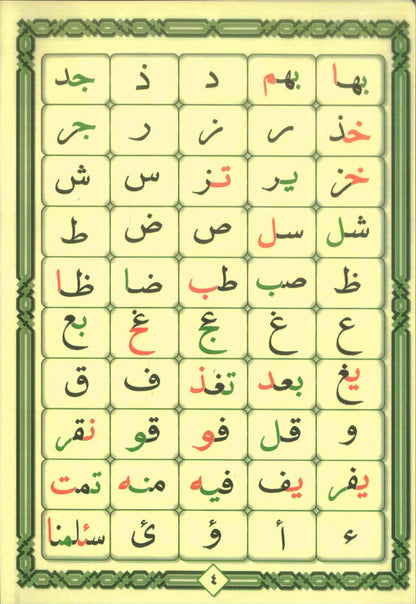 بها بهم د ذ جد
خذ ر ز ر جر
خز ير تز س ش
شل سل ص ض ط
ظ صب طب ضا ظا
ع غ عج غخ بع
يغ بعد تغذ ف ق
و قل فو قو نقر
يفر يف فيه منه تمت
ء أ ؤ ئ سئلمنا
٤